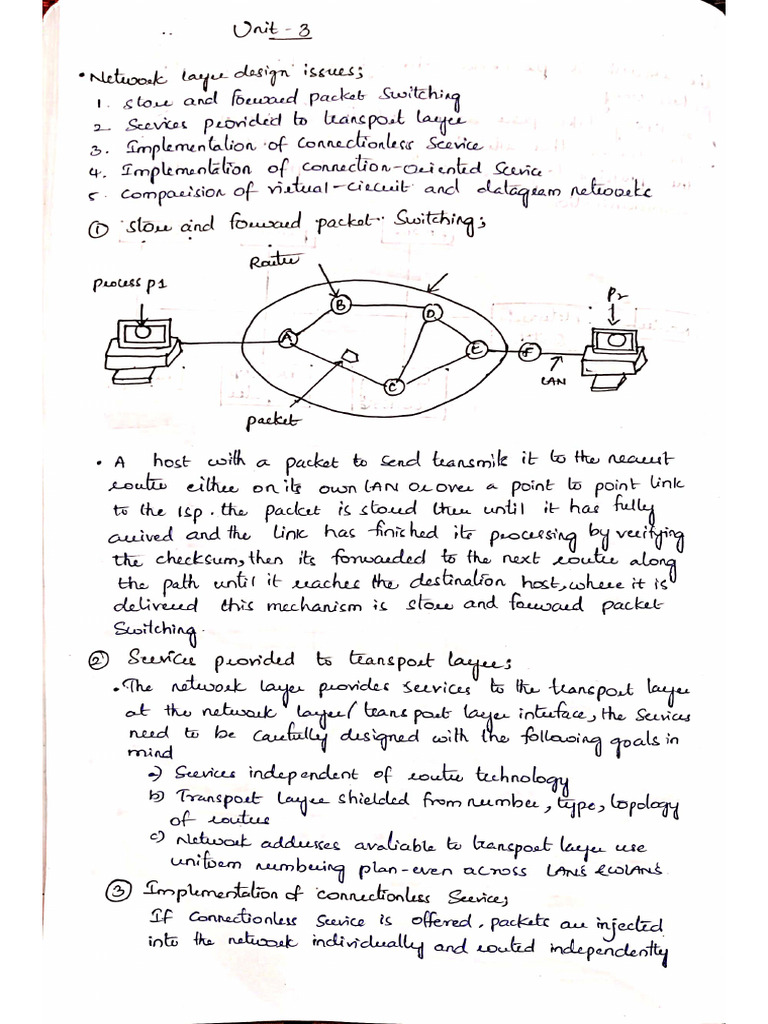 Unit - 3
• Network layer design issues;
1. Store and forward packet Switching
2. Services provided to transport layer
3. Implementation of Connectionless Service
4. Implementation of connection-oriented Service
5. Comparision of virtual-circuit and datagram networks
① Store and forward packet Switching;
Router
process P1
P2
B
D
A
E
F
C
LAN
packet
• A host with a packet to send transmits it to the nearest
router either on its own LAN or over a point to point link
to the ISP. the packet is stored there until it has fully
arrived and the link has finished its processing by verifying
the checksum, then its forwarded to the next router along
the path until it reaches the destination host, where it is
delivered this mechanism is store and forward packet
Switching.
② Services provided to transport layer;
• The network layer provides services to the transport layer
at the network layer/transport layer interface, the Services
need to be carefully designed with the following goals in
mind
a) Services independent of router technology
b) Transport layer shielded from number, type, topology
of routers
c) Network addresses avaliable to transport layer use
uniform numbering plan-even across LANS & WANS.
③ Implementation of connectionless Service;
If Connectionless Service is offered, packets are injected
into the network individually and routed independently